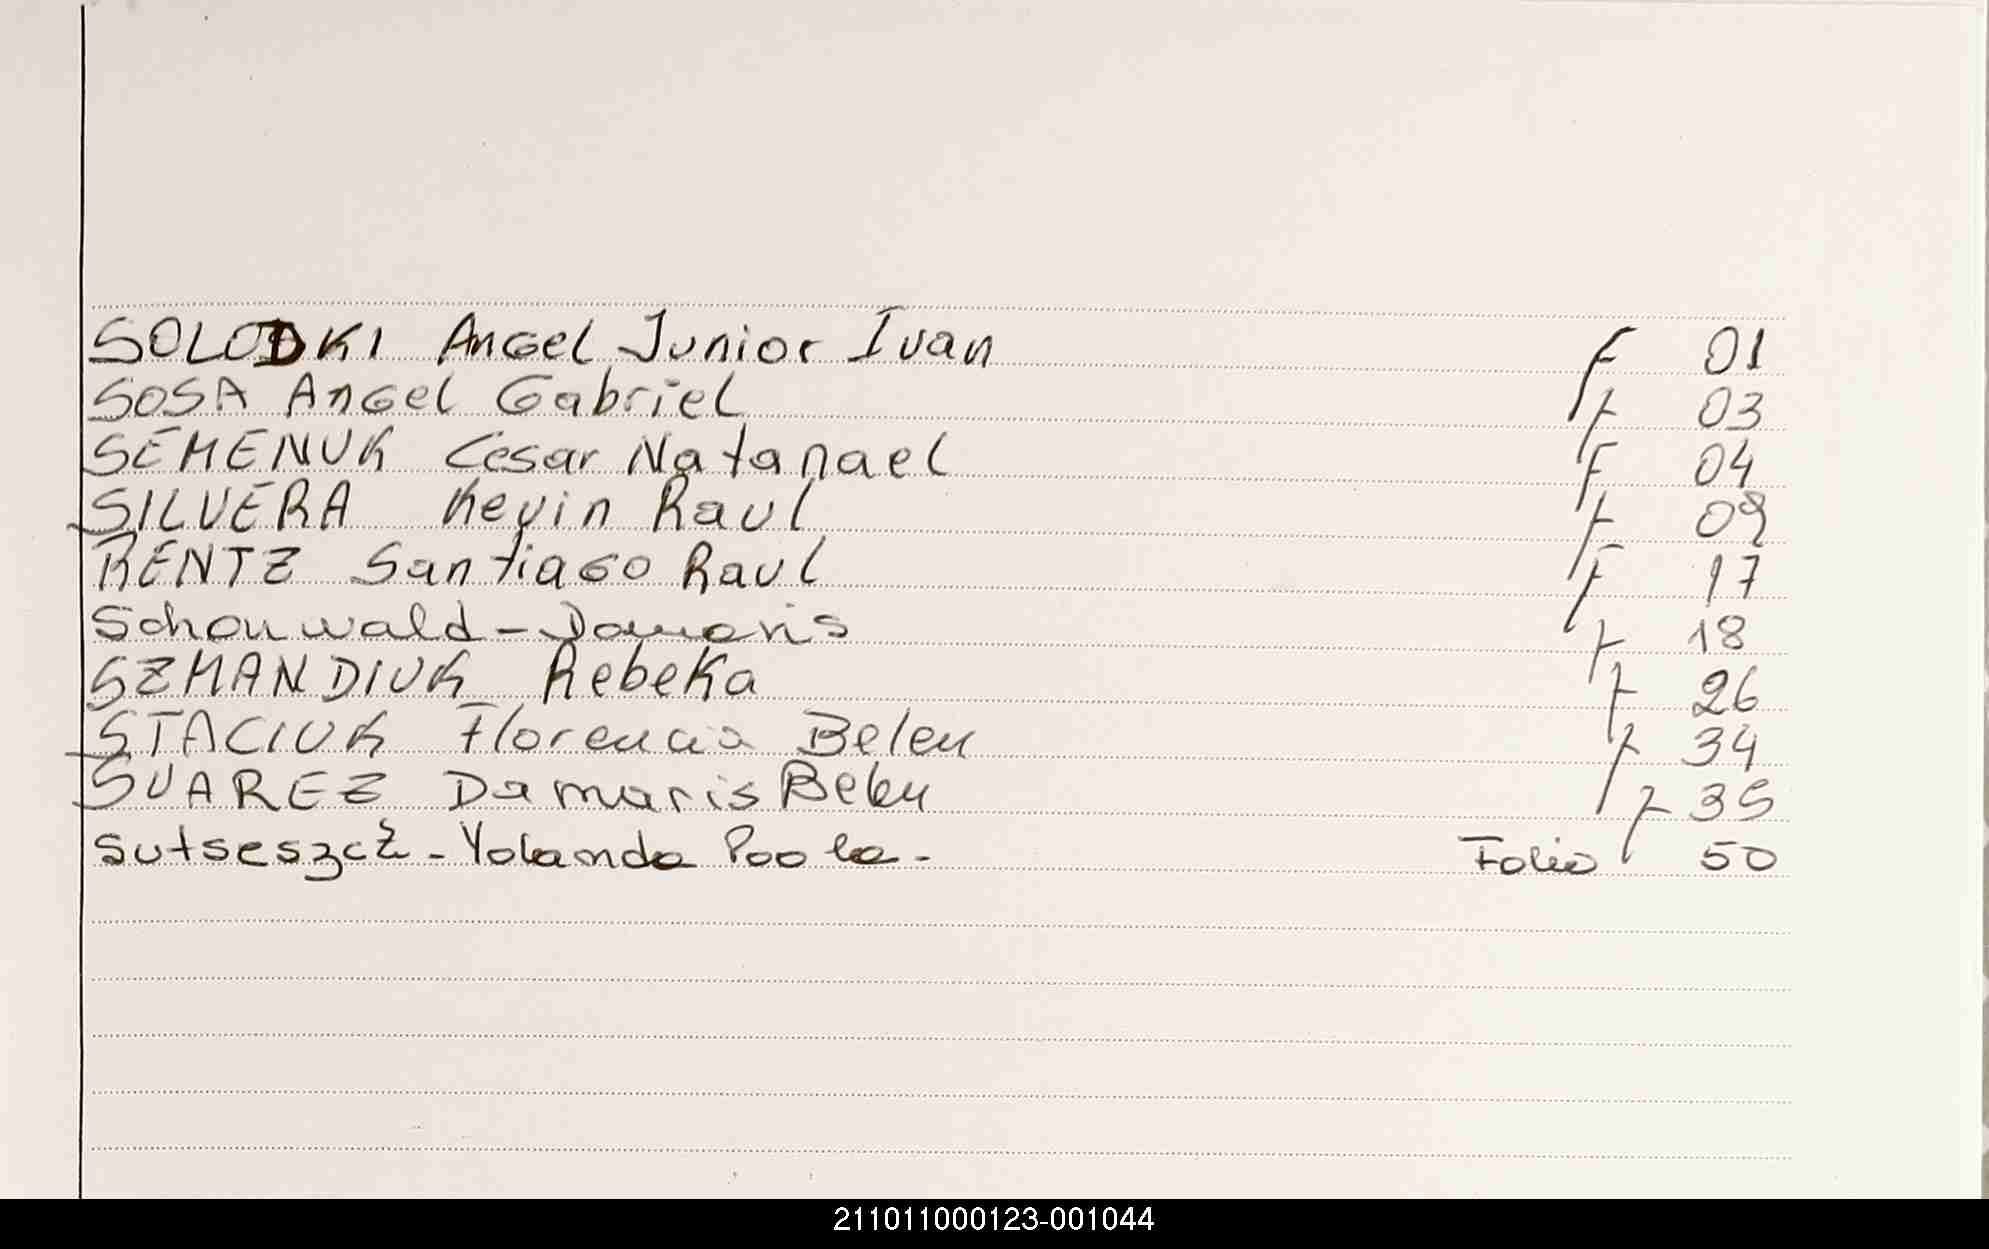 SOLODKI Angel Junior Ivan f 01
SOSA Angel Gabriel f 03
SEMENUK Cesar Natanael f 04
SILVERA Kevin Raul f 09
RENTZ Santiago Raul f 17
Schonwald - Damaris f 18
SZMANDIUK Rebeka f 26
STACIUK Florencia Belen f 34
SUAREZ Damaris Belen f 35
Sutseszcz - Yolanda Paola - Folio 50
211011000123-001044